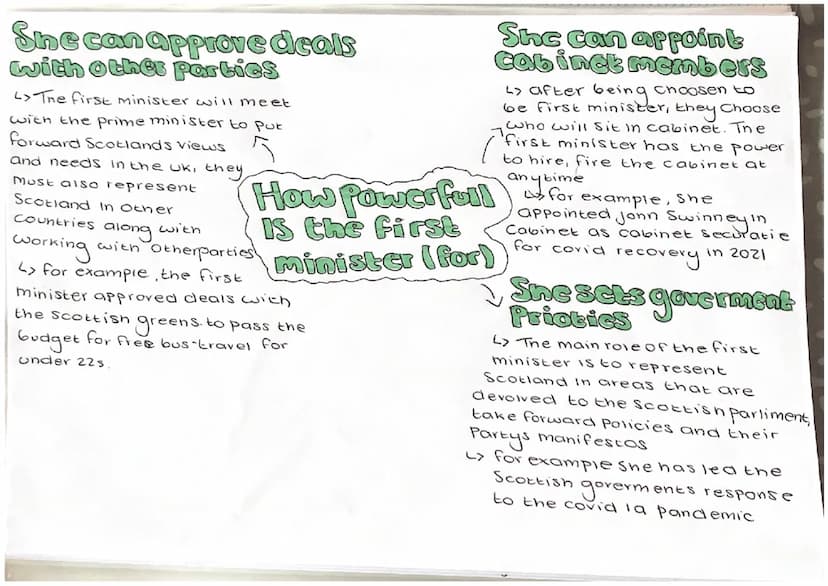 She can approve deals
with other Parties
↳ The first minister will meet
with the prime minister to put
forward Scotlands views
and needs in the uk, they
must also represent
Scotland in other
countries along with
working with other parties
↳ for example, the first
minister approved deals with
the scottish greens to pass the
budget for free bus-travel for
under 22s.
How powerfull
is the first
minister (for)
She can appoint
cabinet members
↳ after being choosen to
be first minister, they choose
who will sit in cabinet. The
first minister has the power
to hire, fire the cabinet at
anytime
↳ for example, she
appointed john Swinney in
cabinet as cabinet
for covid recovery in 2021
She sets goverment
Prioties
↳ The main role of the first
minister is to represent
Scotland in areas that are
devolved to the scottish parliment,
take forward policies and their
Partys manifestos
↳ for example she has led the
Scottish goverments response
to the covid 19 pandemic